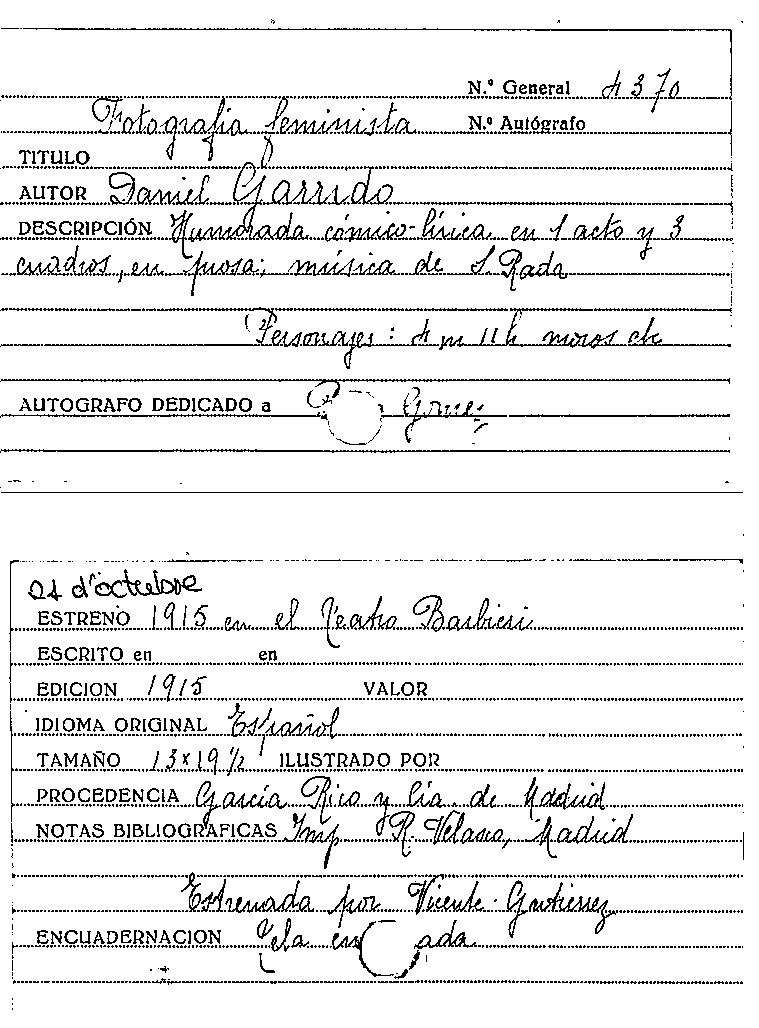 N.º General 4370
Fotografia feminista N.º Autógrafo
TITULO
AUTOR Daniel Garrido
DESCRIPCIÓN Humorada cómico-lírica en 1 acto y 3
cuadros, en prosa; música de S. Rada
Personajes: 4 m 11 h moros etc
AUTOGRAFO DEDICADO a
21 d'octubre
ESTRENO 1915 en el Teatro Barbieri
ESCRITO en en
EDICION 1915 VALOR
IDIOMA ORIGINAL Español
TAMAÑO 13 x 19 1/2 ILUSTRADO POR
PROCEDENCIA García Rico y Cía. de Madrid
NOTAS BIBLIOGRAFICAS Imp R. Velasco, Madrid
Estrenada por Vicente Gutiérrez
ENCUADERNACION Tela en ada